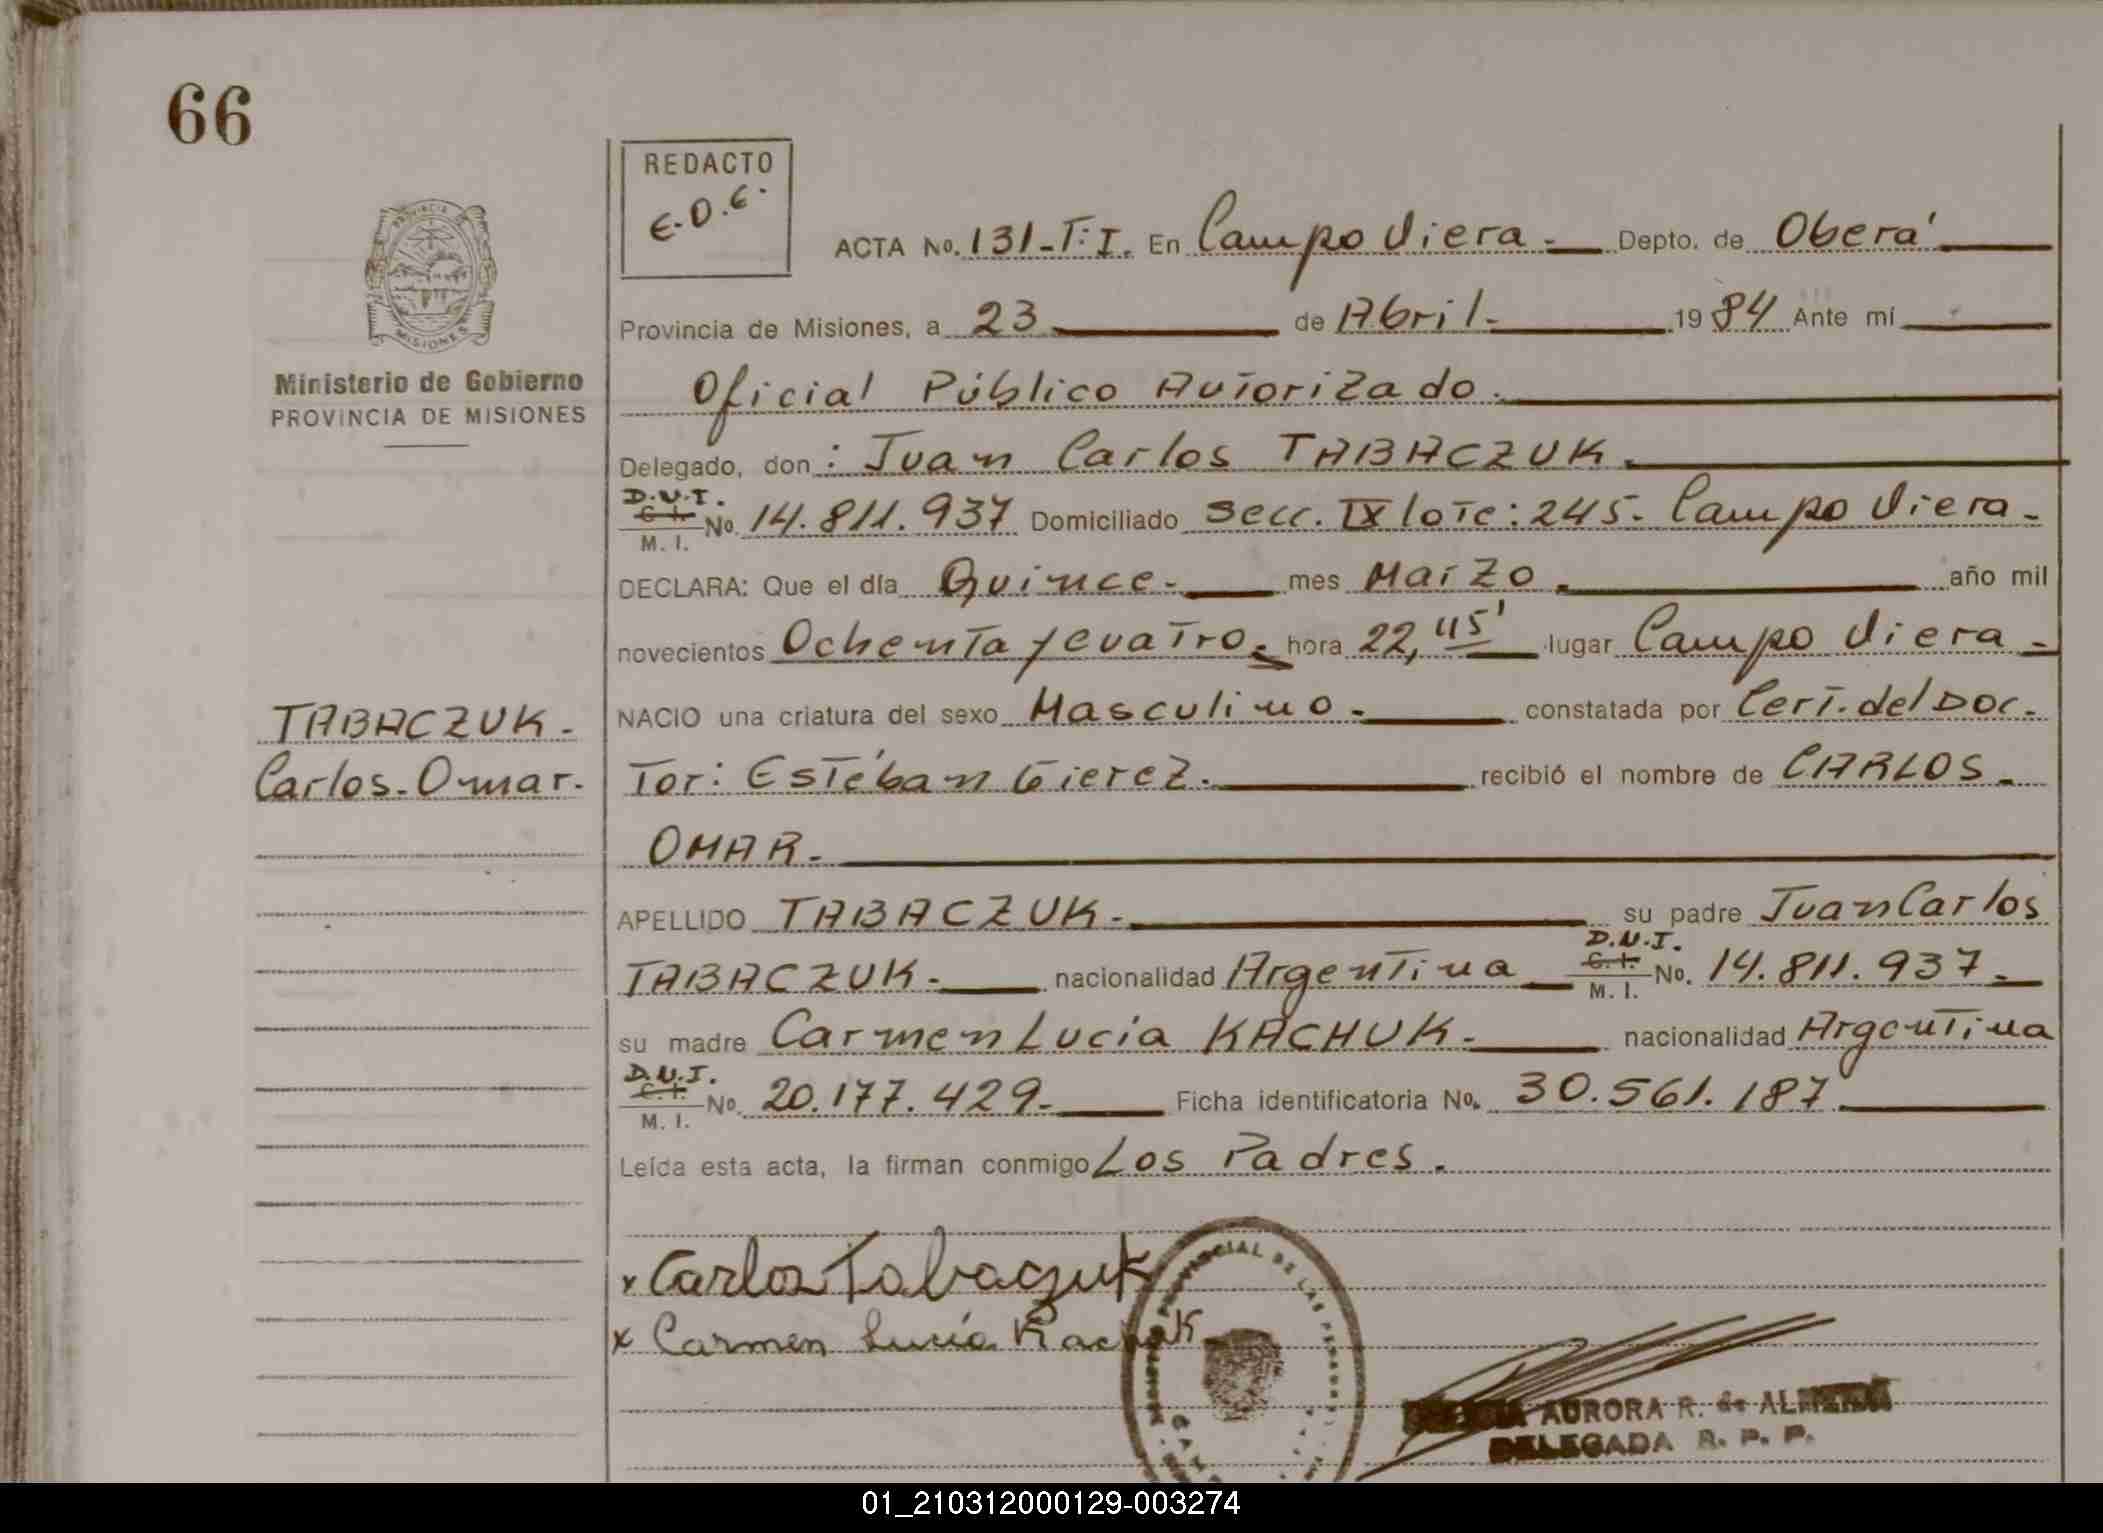 66
REDACTO
E.D.E.
ACTA No. 131-T:I. En Campo Viera - Depto. de Oberá
Provincia de Misiones, a 23 de Abril - 1984 Ante mí
Oficial Público Autorizado.
Delegado, don: Juan Carlos TABACZUK.
D.N.I.
C. I. No. 14.811.937 Domiciliado Secc. IX lote: 245- Campo Viera -
M. I.
DECLARA: Que el día Quince - mes Marzo. año mil
novecientos Ochenta y cuatro. hora 22,45' lugar Campo Viera -
NACIO una criatura del sexo Masculino - constatada por Cert. del Doc-
tor: Estéban Gierez. recibió el nombre de CARLOS -
OMAR -
APELLIDO TABACZUK - su padre Juan Carlos
D.N.I.
TABACZUK - nacionalidad Argentina C. I. No. 14.811.937 -
M. I.
su madre Carmen Lucia KACHUK - nacionalidad Argentina
D.N.I.
C. I. No. 20.177.429 - Ficha identificatoria No. 30.561.187
M. I.
Leída esta acta, la firman conmigo Los Padres.
x Carlos Tabaczuk
x Carmen Lucía Kachuk
PROVINCIA DE MISIONES
Ministerio de Gobierno
PROVINCIA DE MISIONES
TABACZUK -
Carlos - Omar.
PROVINCIAL DE LAS PERSONAS
AURORA R. de
DELEGADA R. P. P.
01_210312000129-003274